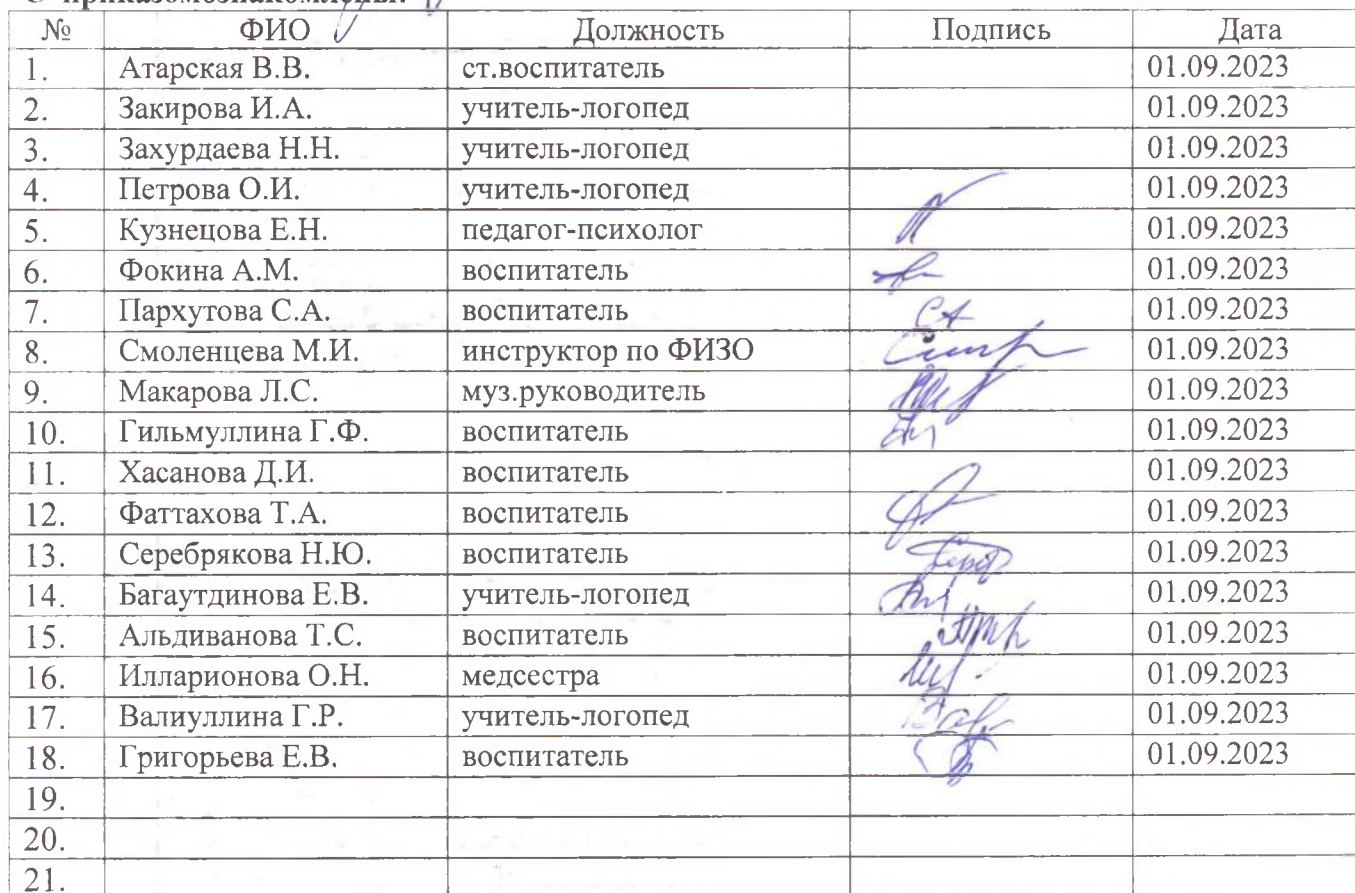 С приказомознакомлены:
№ ФИО Должность Подпись Дата
1. Атарская В.В. ст.воспитатель 01.09.2023
2. Закирова И.А. учитель-логопед 01.09.2023
3. Захурдаева Н.Н. учитель-логопед 01.09.2023
4. Петрова О.И. учитель-логопед 01.09.2023
5. Кузнецова Е.Н. педагог-психолог 01.09.2023
6. Фокина А.М. воспитатель 01.09.2023
7. Пархутова С.А. воспитатель 01.09.2023
8. Смоленцева М.И. инструктор по ФИЗО 01.09.2023
9. Макарова Л.С. муз.руководитель 01.09.2023
10. Гильмуллина Г.Ф. воспитатель 01.09.2023
11. Хасанова Д.И. воспитатель 01.09.2023
12. Фаттахова Т.А. воспитатель 01.09.2023
13. Серебрякова Н.Ю. воспитатель 01.09.2023
14. Багаутдинова Е.В. учитель-логопед 01.09.2023
15. Альдиванова Т.С. воспитатель 01.09.2023
16. Илларионова О.Н. медсестра 01.09.2023
17. Валиуллина Г.Р. учитель-логопед 01.09.2023
18. Григорьева Е.В. воспитатель 01.09.2023
19.
20.
21.